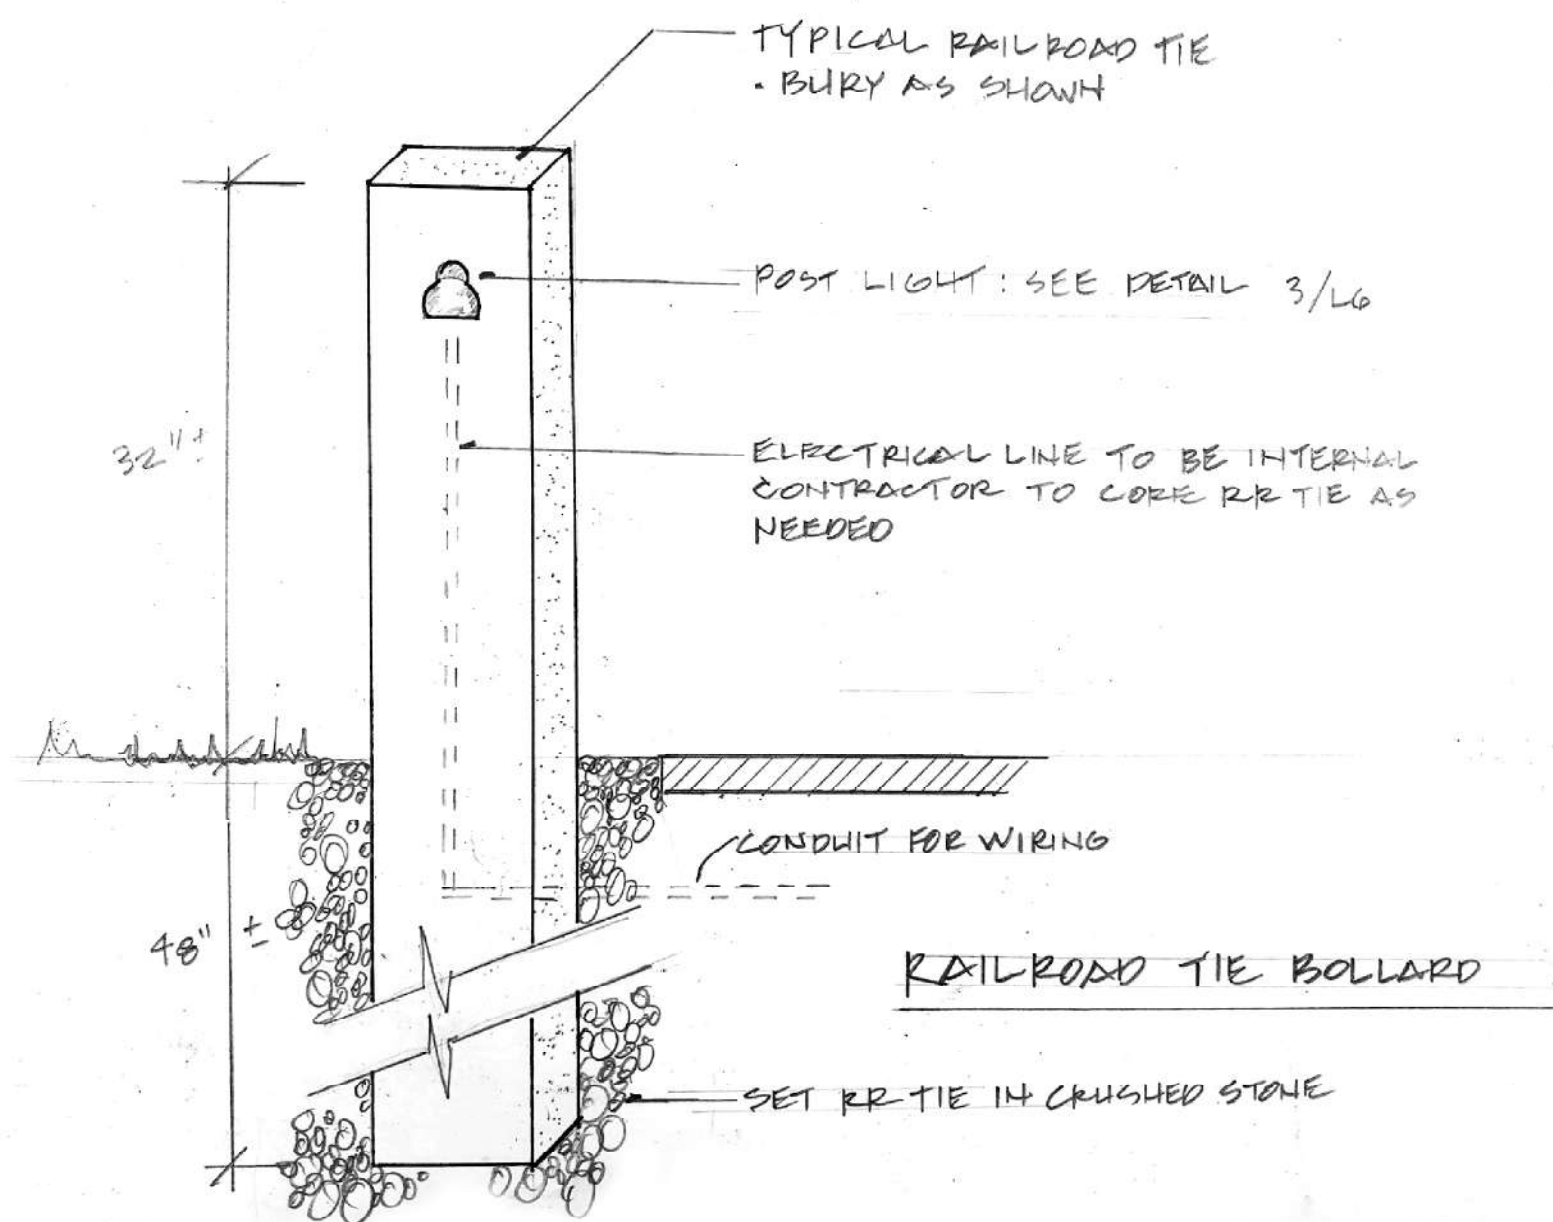 TYPICAL RAILROAD TIE
• BURY AS SHOWN
POST LIGHT: SEE DETAIL 3/L6
32" ±
ELECTRICAL LINE TO BE INTERNAL
CONTRACTOR TO CORE RR TIE AS
NEEDED
CONDUIT FOR WIRING
48" ±
RAILROAD TIE BOLLARD
SET RR TIE IN CRUSHED STONE